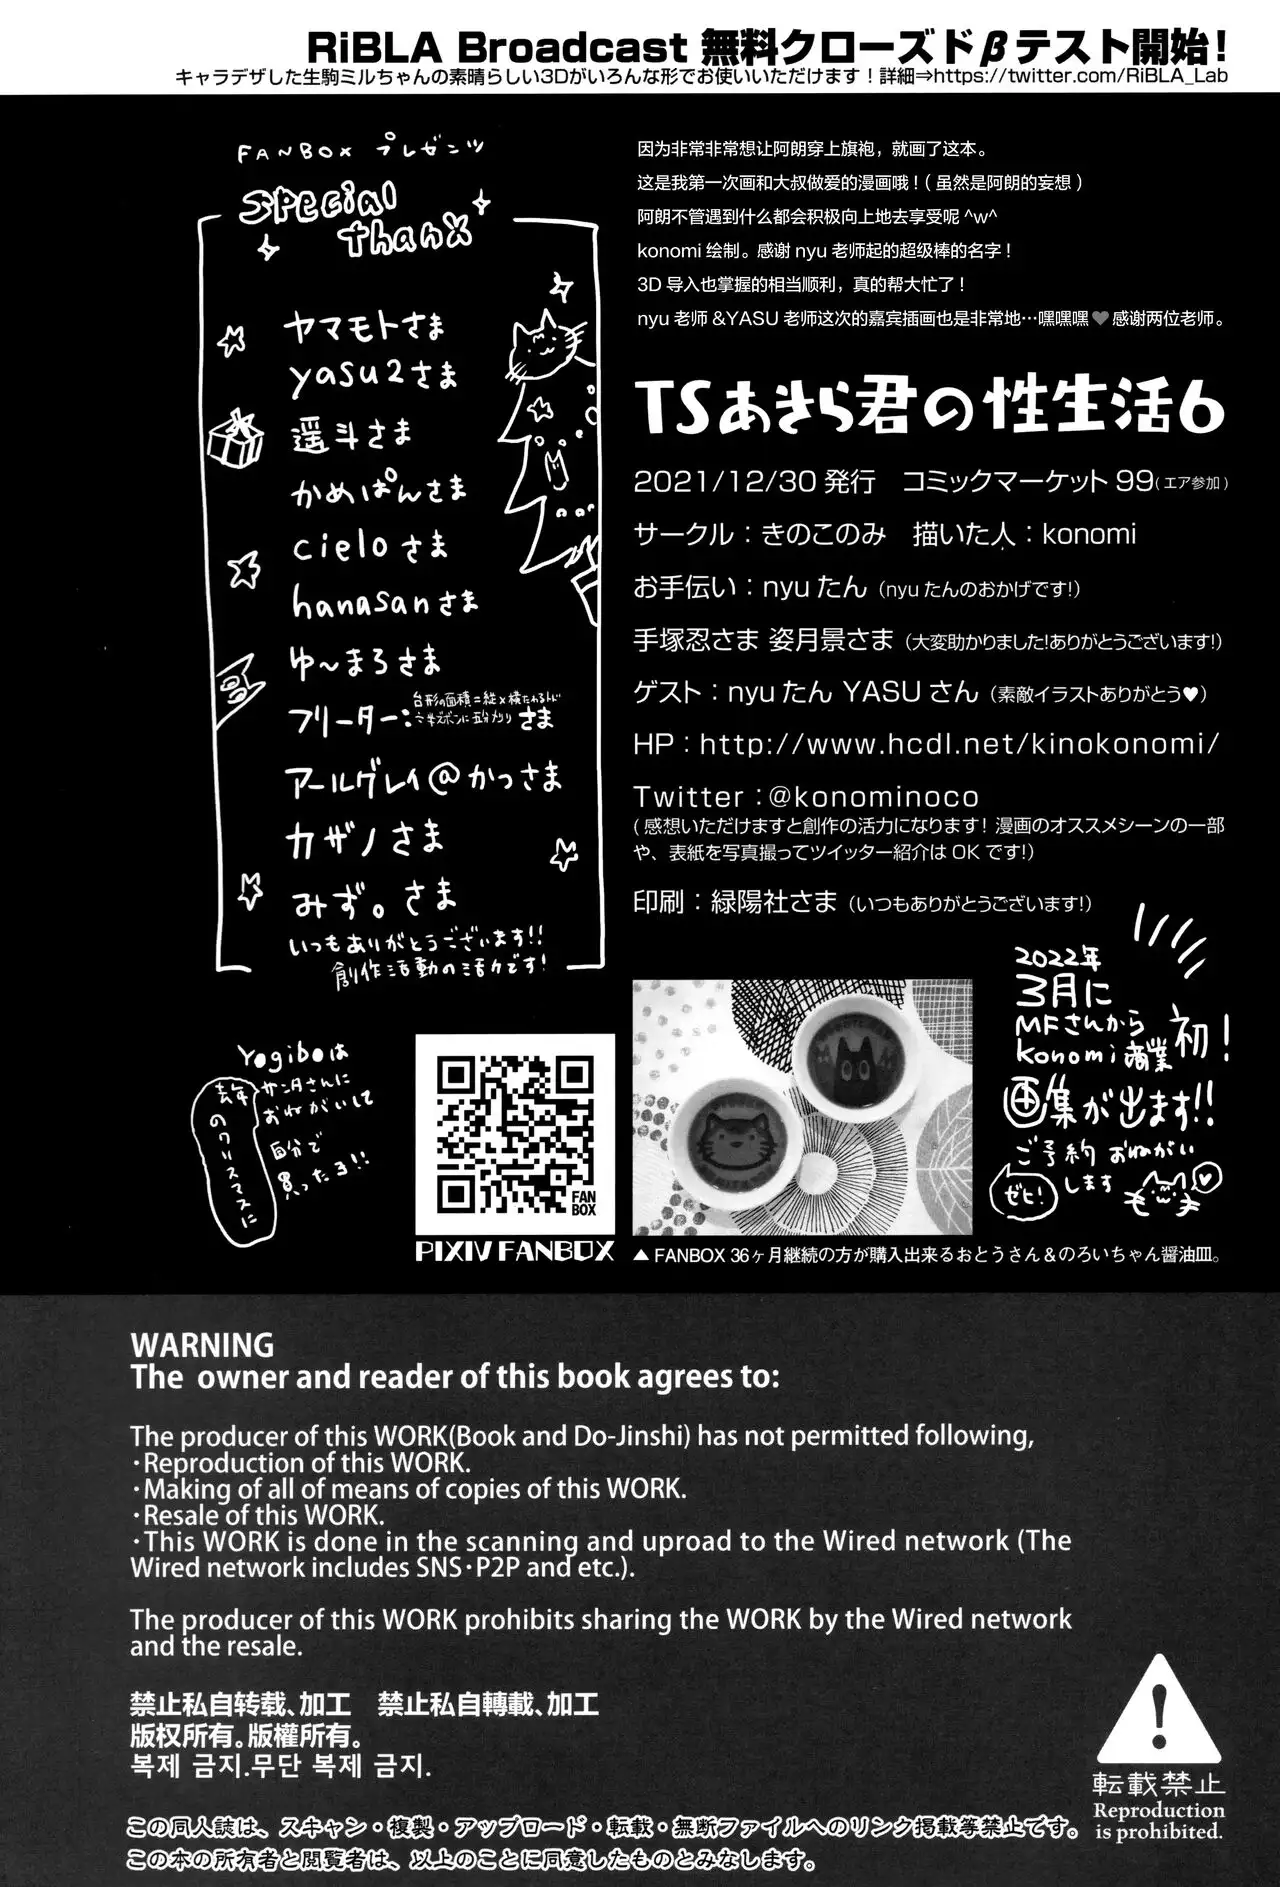 RiBLA Broadcast 無料クローズドβテスト開始!
キャラデザした生駒ミルちゃんの素晴らしい3Dがいろんな形でお使いいただけます！詳細⇒https://twitter.com/RiBLA_Lab
FANBOX プレゼンツ
Special
thanX
ヤマモトさま
yasu2さま
遥斗さま
かめぱんさま
cieloさま
hanasanさま
ゆ～まろさま
フリーター:台形の面積=縦×横たわるトド
六半ズボンに五分刈りさま
アールグレイ@かっさま
カザノさま
みず。さま
いつもありがとうございます!!
創作活動の活力です!
因为非常非常想让阿朗穿上旗袍，就画了这本。
这是我第一次画和大叔做爱的漫画哦！（虽然是阿朗的妄想）
阿朗不管遇到什么都会积极向上地去享受呢 ^w^
konomi 绘制。感谢 nyu 老师起的超级棒的名字！
3D 导入也掌握的相当顺利，真的帮大忙了！
nyu 老师 &YASU 老师这次的嘉宾插画也是非常地…嘿嘿嘿♥感谢两位老师。
TSあきら君の性生活6
2021/12/30 発行　コミックマーケット 99(エア参加)
サークル：きのこのみ　描いた人：konomi
お手伝い：nyu たん（nyu たんのおかげです!）
手塚忍さま 姿月景さま（大変助かりました!ありがとうございます!）
ゲスト：nyu たん YASU さん（素敵イラストありがとう♥）
HP：http://www.hcdl.net/kinokonomi/
Twitter：@konominoco
(感想いただけますと創作の活力になります！漫画のオススメシーンの一部
や、表紙を写真撮ってツイッター紹介は OK です!）
印刷：緑陽社さま（いつもありがとうございます!）
2022年
3月に
MFさんから
konomi商業初!
画集が出ます!!
ご予約おねがい
します
ゼヒ!
Yogiboは
サンタさんに
おねがいして
自分で
買ったよ!!
去年のクリスマスに
FAN
BOX
PIXIV FANBOX
▲ FANBOX 36ヶ月継続の方が購入出来るおとうさん＆のろいちゃん醤油皿。
WARNING
The owner and reader of this book agrees to:
The producer of this WORK(Book and Do-Jinshi) has not permitted following,
・Reproduction of this WORK.
・Making of all of means of copies of this WORK.
・Resale of this WORK.
・This WORK is done in the scanning and uproad to the Wired network (The
Wired network includes SNS・P2P and etc.).
The producer of this WORK prohibits sharing the WORK by the Wired network
and the resale.
禁止私自转载、加工　禁止私自轉載、加工
版权所有。版權所有。
복제 금지.무단 복제 금지.
この同人誌は、スキャン・複製・アップロード・転載・無断ファイルへのリンク掲載等禁止です。
この本の所有者と閲覧者は、以上のことに同意したものとみなします。
転載禁止
Reproduction
is prohibited.